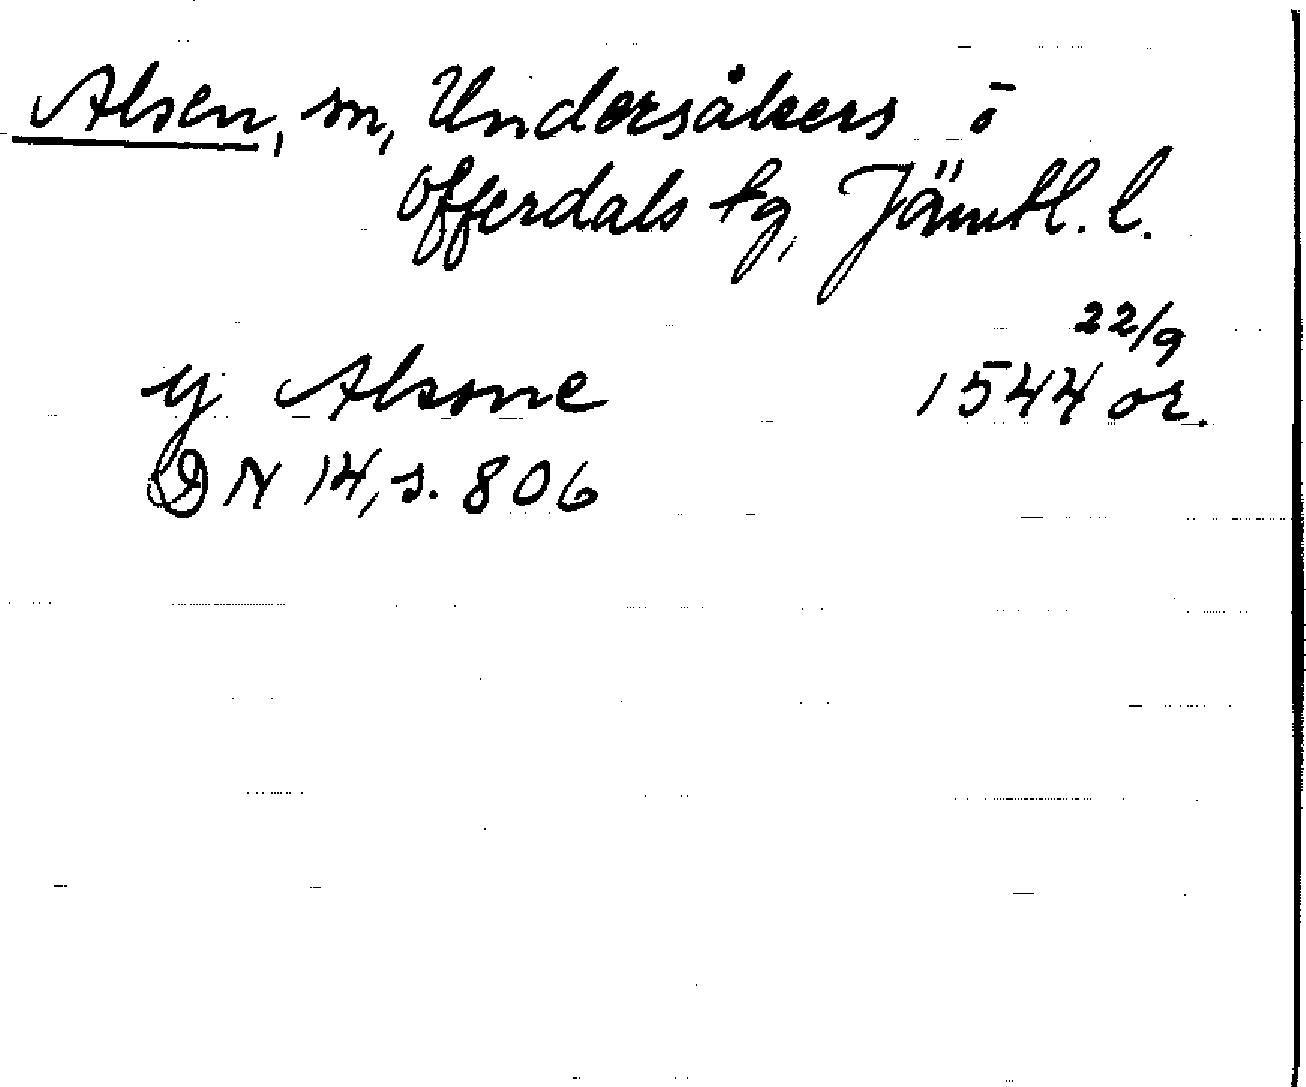 Alsen, sn, Undersåkers o
Offerdals tg, Jämtl. l.
22/9
y Alsone 1544 or.
DN 14, s. 806